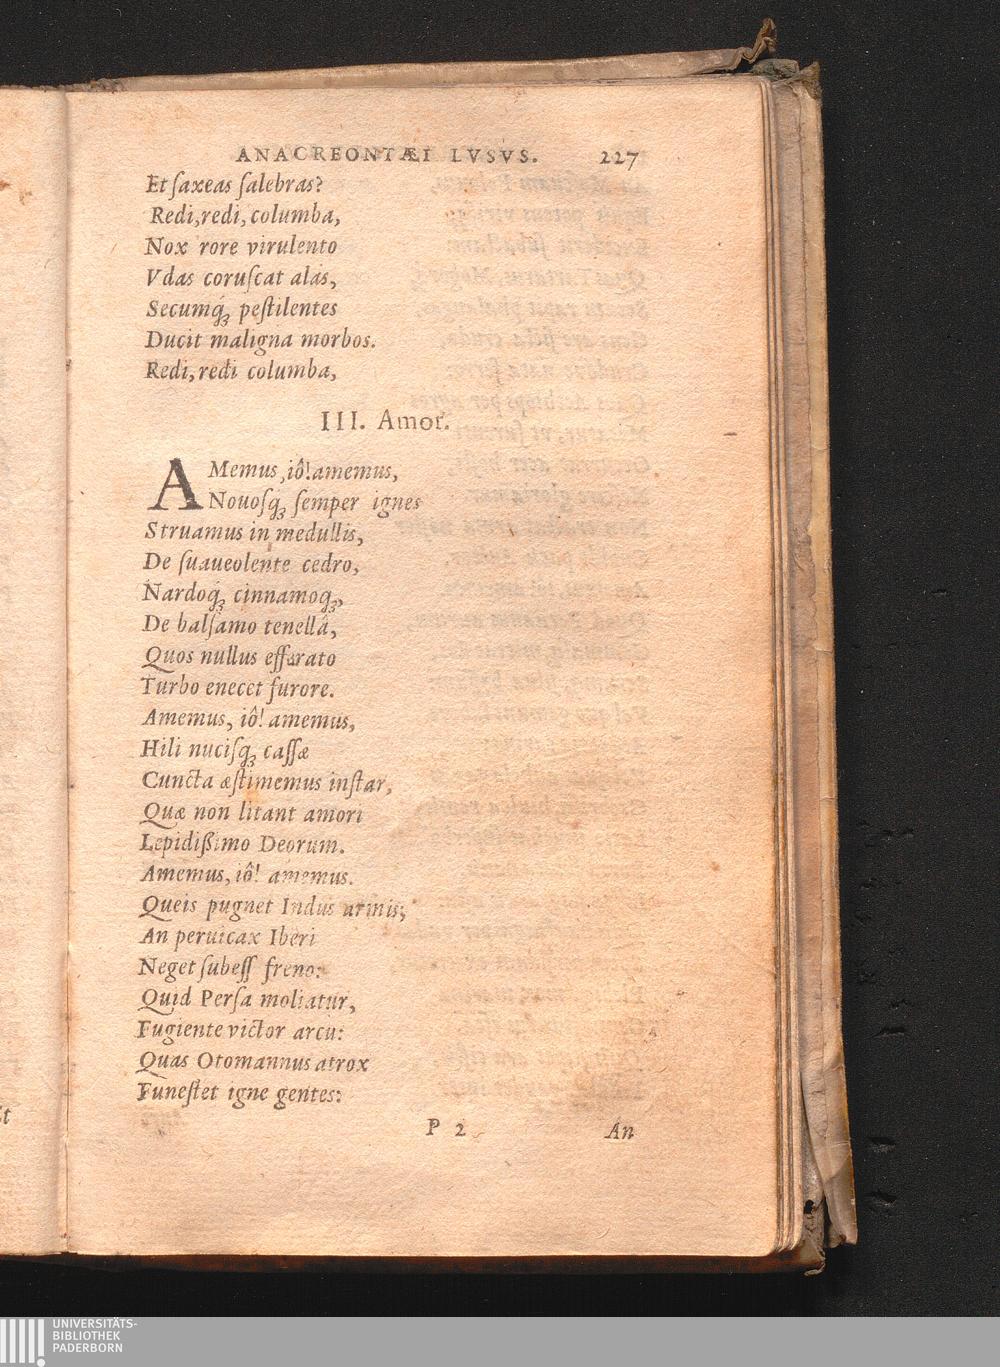 ANACREONTÆI LVSVS. 227
Et ſaxeas ſalebras?
Redi, redi, columba,
Nox rore virulento
Vdas coruſcat alas,
Secumq́ꝫ peſtilentes
Ducit maligna morbos.
Redi, redi columba,
III. Amor.
AMemus, iô! amemus,
Nouoſq́ꝫ ſemper ignes
Struamus in medullis,
De ſuaueolente cedro,
Nardoq́ꝫ cinnamoq́ꝫ,
De balſamo tenellâ,
Quos nullus efferato
Turbo enecet furore.
Amemus, iô! amemus,
Hili nuciſq́ꝫ caſſæ
Cuncta æſtimemus inſtar,
Quæ non litant amori
Lepidiſsimo Deorum.
Amemus, iô! amemus.
Queis pugnet Indus armis;
An peruicax Iberi
Neget ſubeſſ freno:
Quid Perſa moliatur,
Fugiente victor arcu:
Quas Otomannus atrox
Funeſtet igne gentes:
P 2 An
UNIVERSITÄTS-
BIBLIOTHEK
PADERBORN